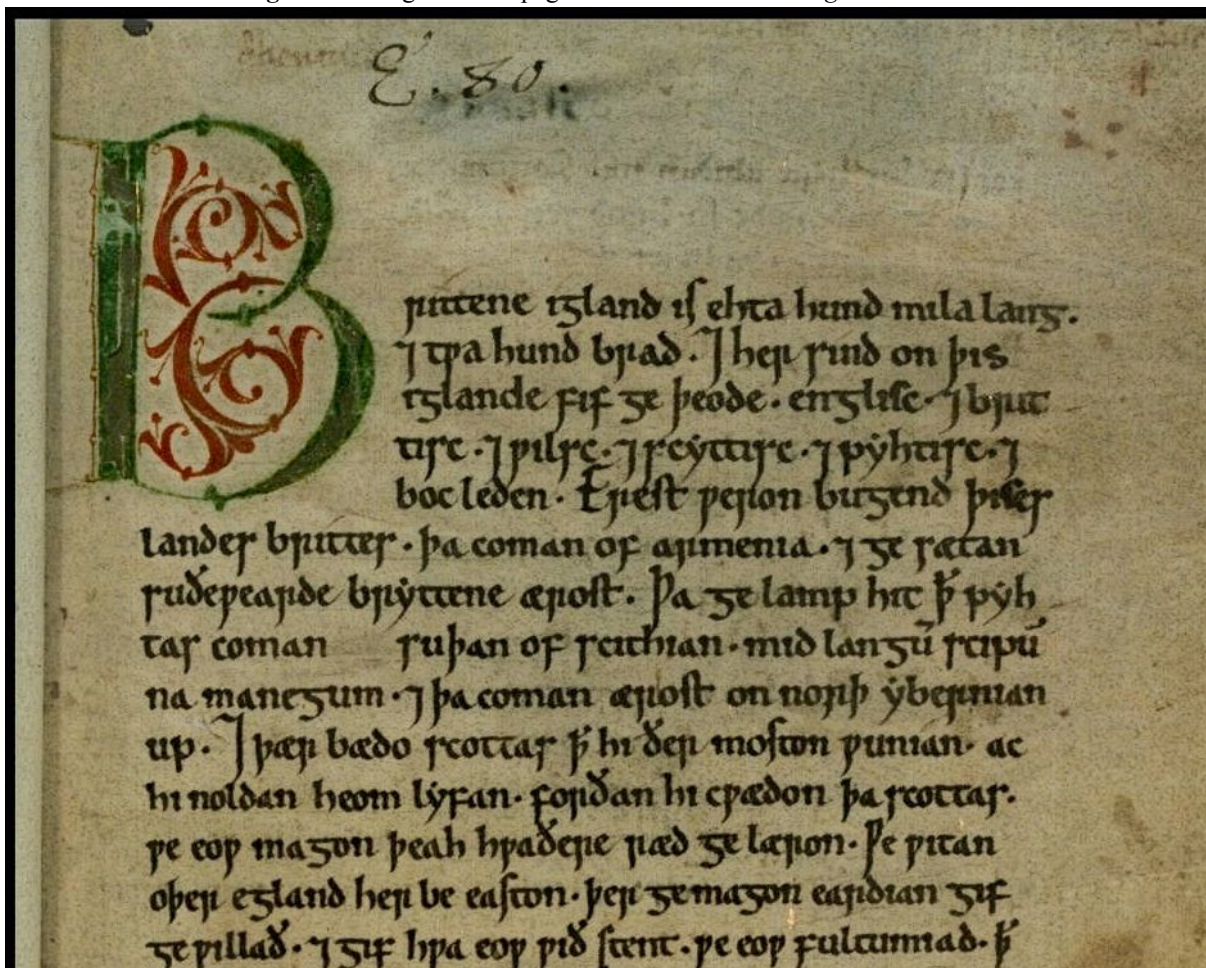 E. 80.
Brittene igland is ehta hund mila lang.
⁊ tƿa hund brad. ⁊ her sind on þis
iglande fif ge þeode. englisc. ⁊ brit
tisc. ⁊ ƿilsc. ⁊ scyttisc. ⁊ pyhtisc. ⁊
boc leden. Erest ƿeron bugend þises
landes brittes. þa coman of armenia. ⁊ ge sætan
suðeƿearde bryttene ærost. Þa ge lamp hit ꝥ pyh
tas coman suþan of scithian. mid langū scipū
na manegum. ⁊ þa coman ærost on norþ ybernian
up. ⁊ þær bædo scottas ꝥ hi ðer moston ƿunian. ac
hi noldan heom lyfan. forðan hi cƿædon þa scottas.
ƿe eoƿ magon þeah hƿaðere ræd ge læron. Ƿe ƿitan
oþer egland her be easton. þer ge magon eardian gif
ge ƿillað. ⁊ gif hƿa eoƿ ƿið stent. ƿe eoƿ fultumiad. ꝥ